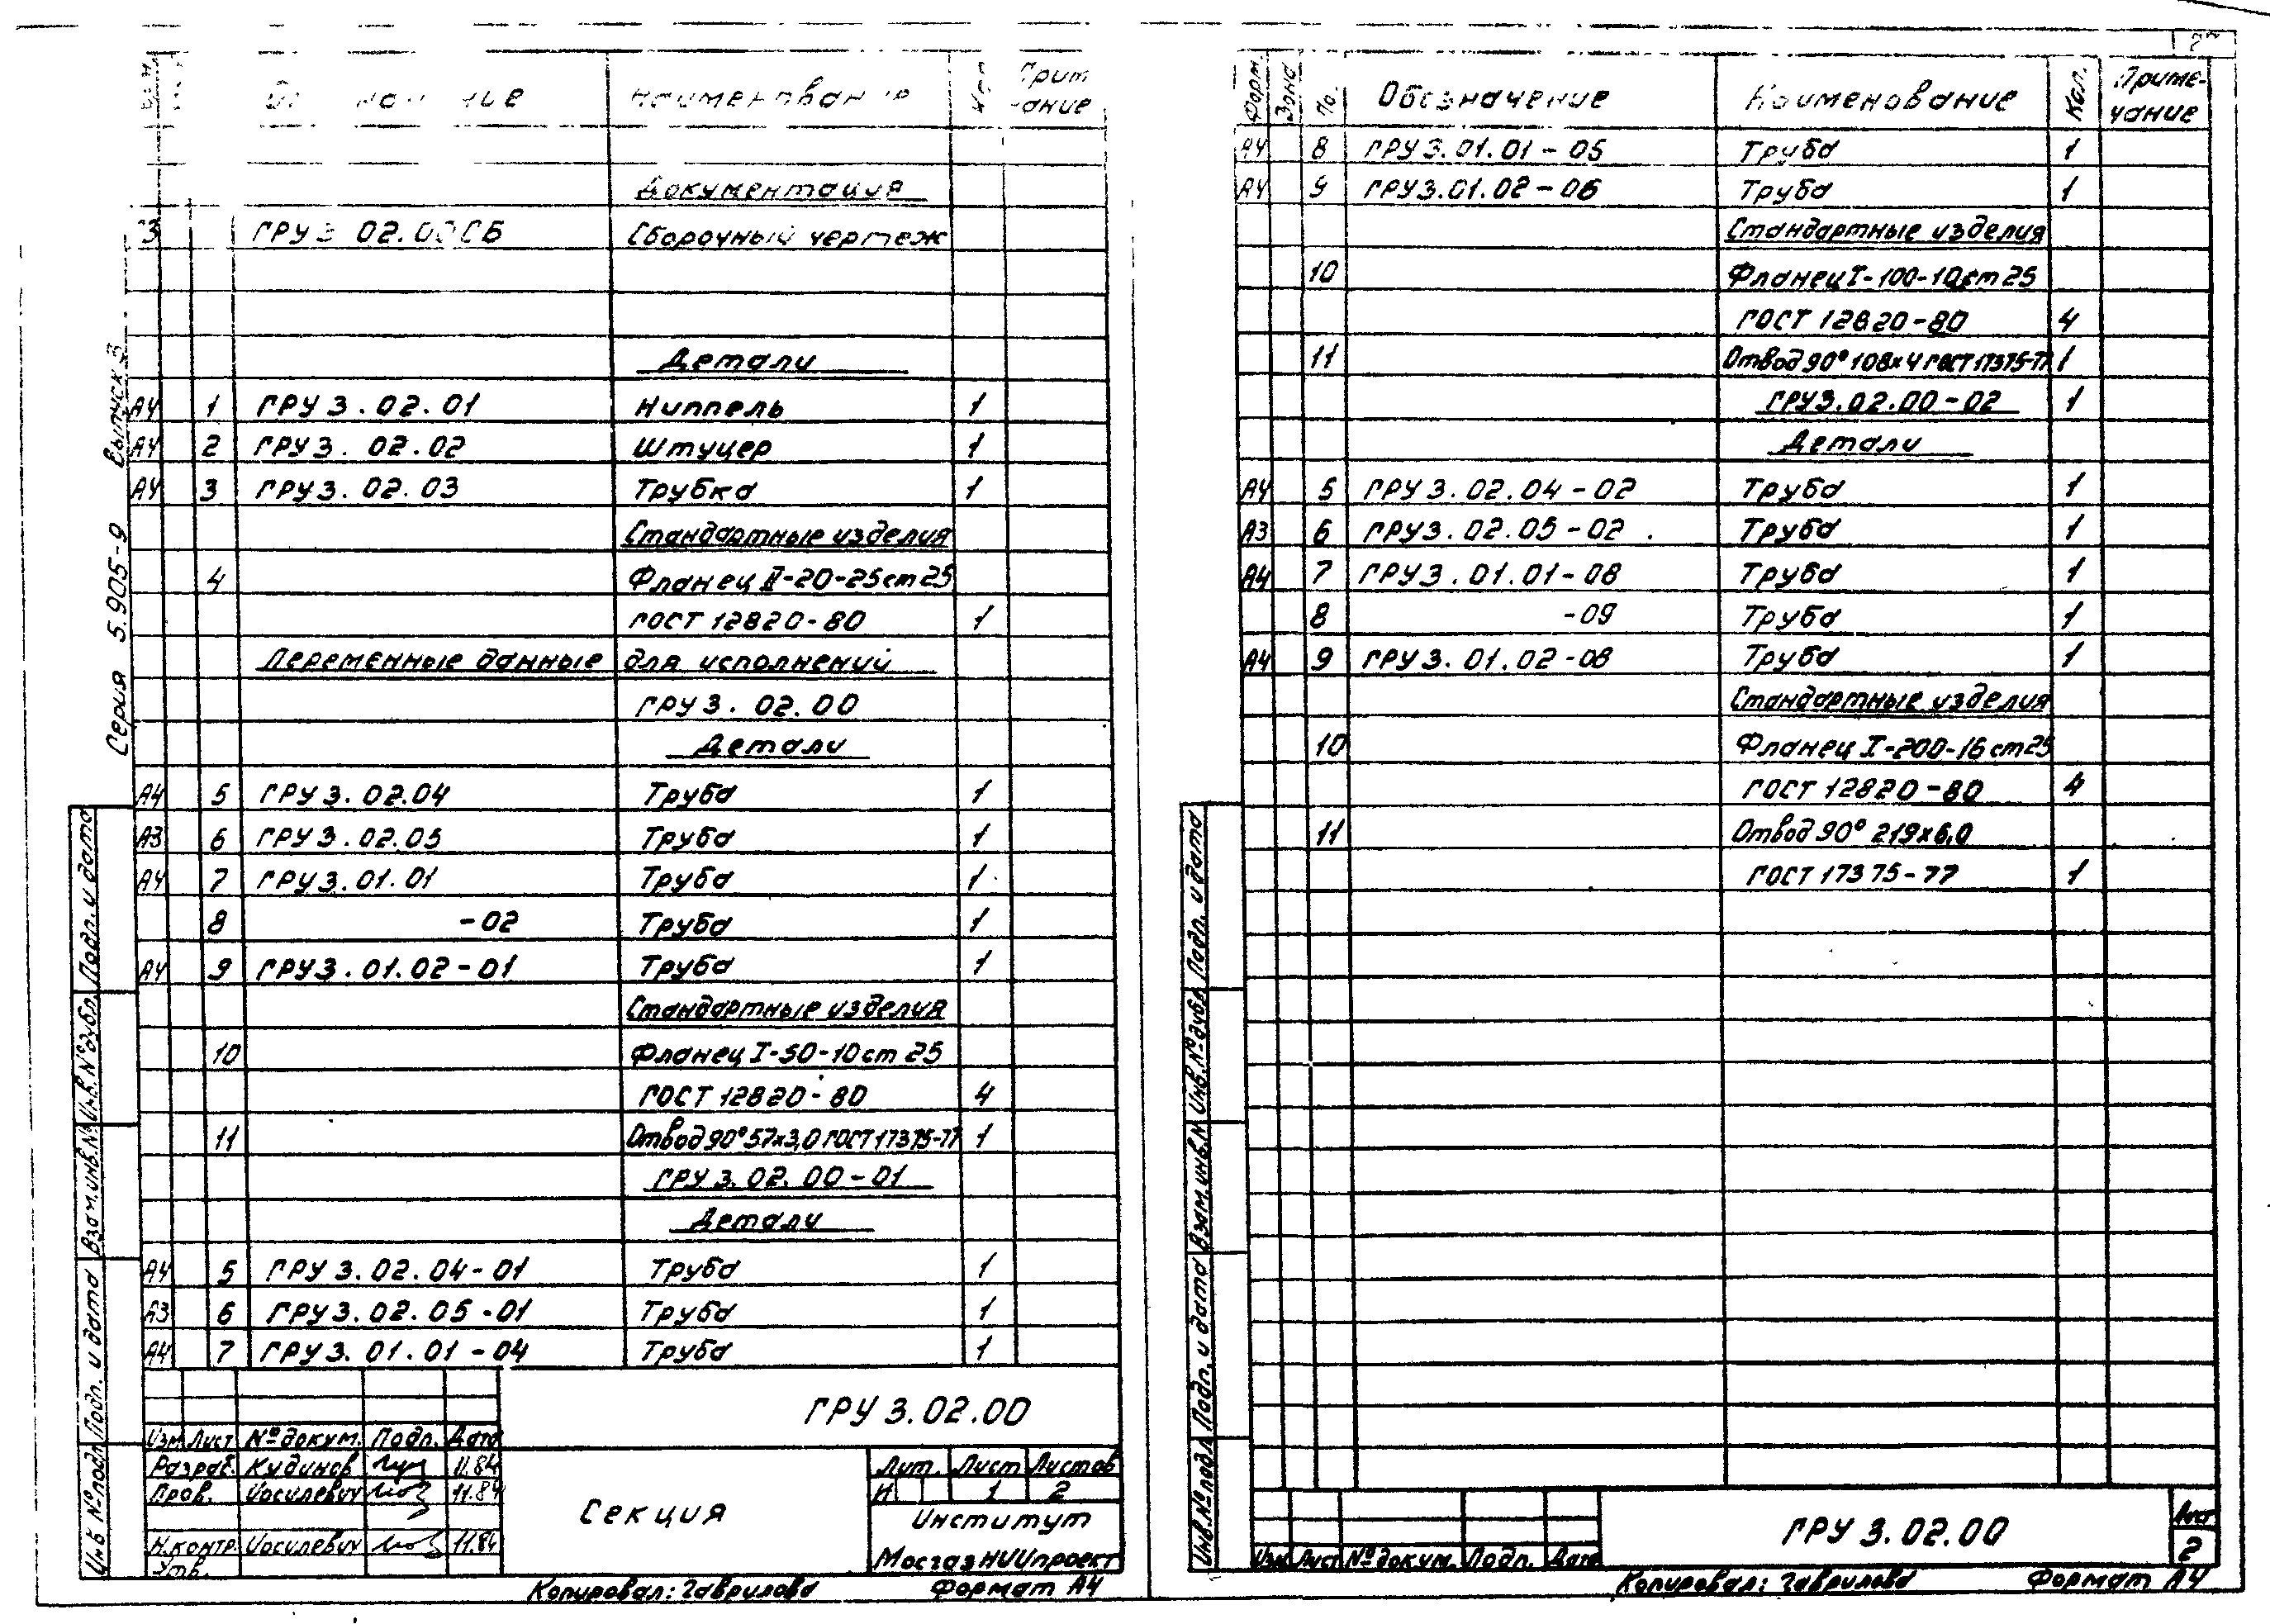 Обозначение Наименование Кол Приме-
чание
Документация
А3 ГРУ 3.02.00 СБ Сборочный чертеж
Детали
А4 1 ГРУ 3.02.01 Ниппель 1
А4 2 ГРУ 3.02.02 Штуцер 1
А4 3 ГРУ 3.02.03 Трубка 1
Стандартные изделия
4 Фланец II-20-25 ст 25
ГОСТ 12820-80 1
Переменные данные для исполнений
ГРУ 3.02.00
Детали
А4 5 ГРУ 3.02.04 Труба 1
А3 6 ГРУ 3.02.05 Труба 1
А4 7 ГРУ 3.01.01 Труба 1
8 -02 Труба 1
А4 9 ГРУ 3.01.02-01 Труба 1
Стандартные изделия
10 Фланец I-50-10 ст 25
ГОСТ 12820-80 4
11 Отвод 90° 57х3,0 ГОСТ 17375-77 1
ГРУ 3.02.00-01
Детали
А4 5 ГРУ 3.02.04-01 Труба 1
А3 6 ГРУ 3.02.05-01 Труба 1
А4 7 ГРУ 3.01.01-04 Труба 1
ГРУ 3.02.00
Изм Лист № докум. Подп. Дата
Разраб. Кудинов 11.84
Пров. Иосилевич 11.84
Н.контр. Иосилевич 11.84
Утв.
Секция
Лит. Лист Листов
И 1 2
Институт
МосгазНИИпроект
Копировал: Гаврилова Формат А4
Серия 5.905-9 Выпуск 3
Инв № подл Подп. и дата Взам.инв.№ Инв.№ дубл. Подп. и дата
Форм. Зона По. Обозначение Наименование Кол. Приме-
чание
А4 8 ГРУ 3.01.01-05 Труба 1
А4 9 ГРУ 3.01.02-06 Труба 1
Стандартные изделия
10 Фланец I-100-10 ст 25
ГОСТ 12820-80 4
11 Отвод 90° 108х4 ГОСТ 17375-77 1
ГРУ 3.02.00-02 1
Детали
А4 5 ГРУ 3.02.04-02 Труба 1
А3 6 ГРУ 3.02.05-02 Труба 1
А4 7 ГРУ 3.01.01-08 Труба 1
8 -09 Труба 1
А4 9 ГРУ 3.01.02-08 Труба 1
Стандартные изделия
10 Фланец I-200-16 ст 25
ГОСТ 12820-80 4
11 Отвод 90° 219х6,0
ГОСТ 17375-77 1
Изм Лист № докум. Подп. Дата
ГРУ 3.02.00
Лист
2
Копировал: Гаврилова Формат А4
Инв.№ подл Подп. и дата Взам.инв.№ Инв.№ дубл Подп. и дата